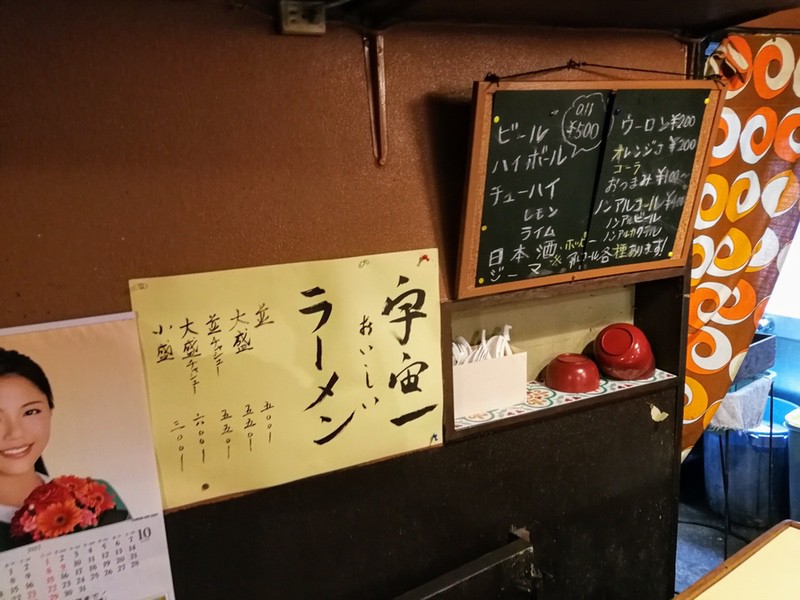 宇宙一
おいしい
ラーメン
並 五〇〇ー
大盛 五五〇ー
並チャシュー 五五〇ー
大盛チャシュー 六〇〇ー
小盛 三〇〇ー
all ¥500
ビール
ハイボール
チューハイ
レモン
ライム
日本酒
ジーマ
ウーロン ¥200
オレンジJ ¥200
コーラ
おつまみ ¥100〜
ノンアルコール ¥400
ノンアルビール
ノンアルカクテル
各種あります!
10